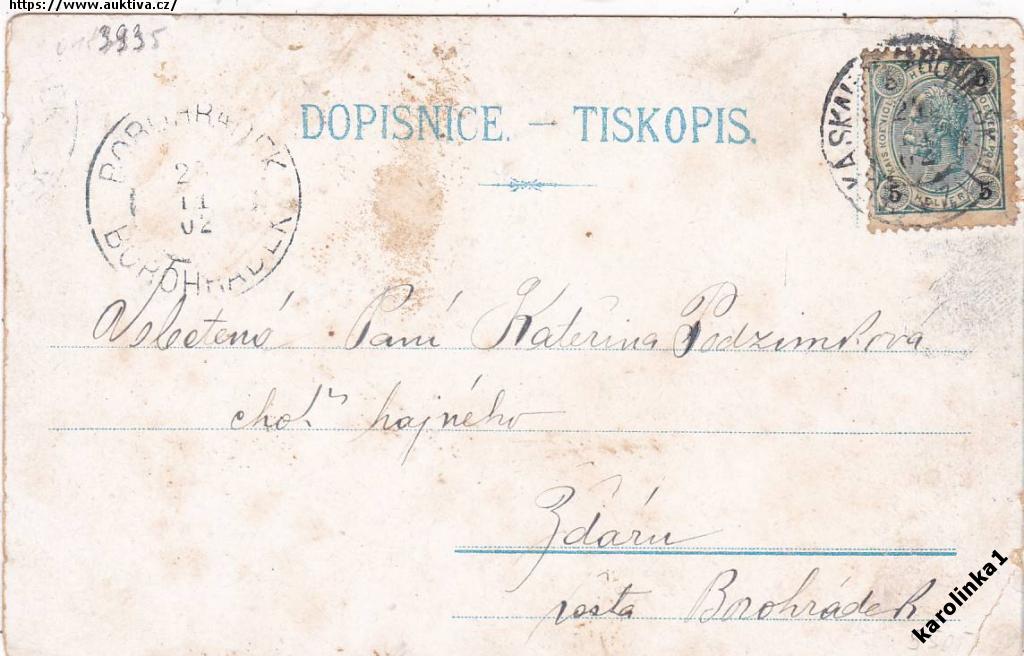 https://www.auktiva.cz/
3935
DOPISNICE. — TISKOPIS.
BOROHRADEK
2
11
02
BOROHRÁDEK
5 5
5 5
Vsbctená Paní Kateřina Podzimková
choť hajného
Žďáru
pošta Borohrádek
karolinka1